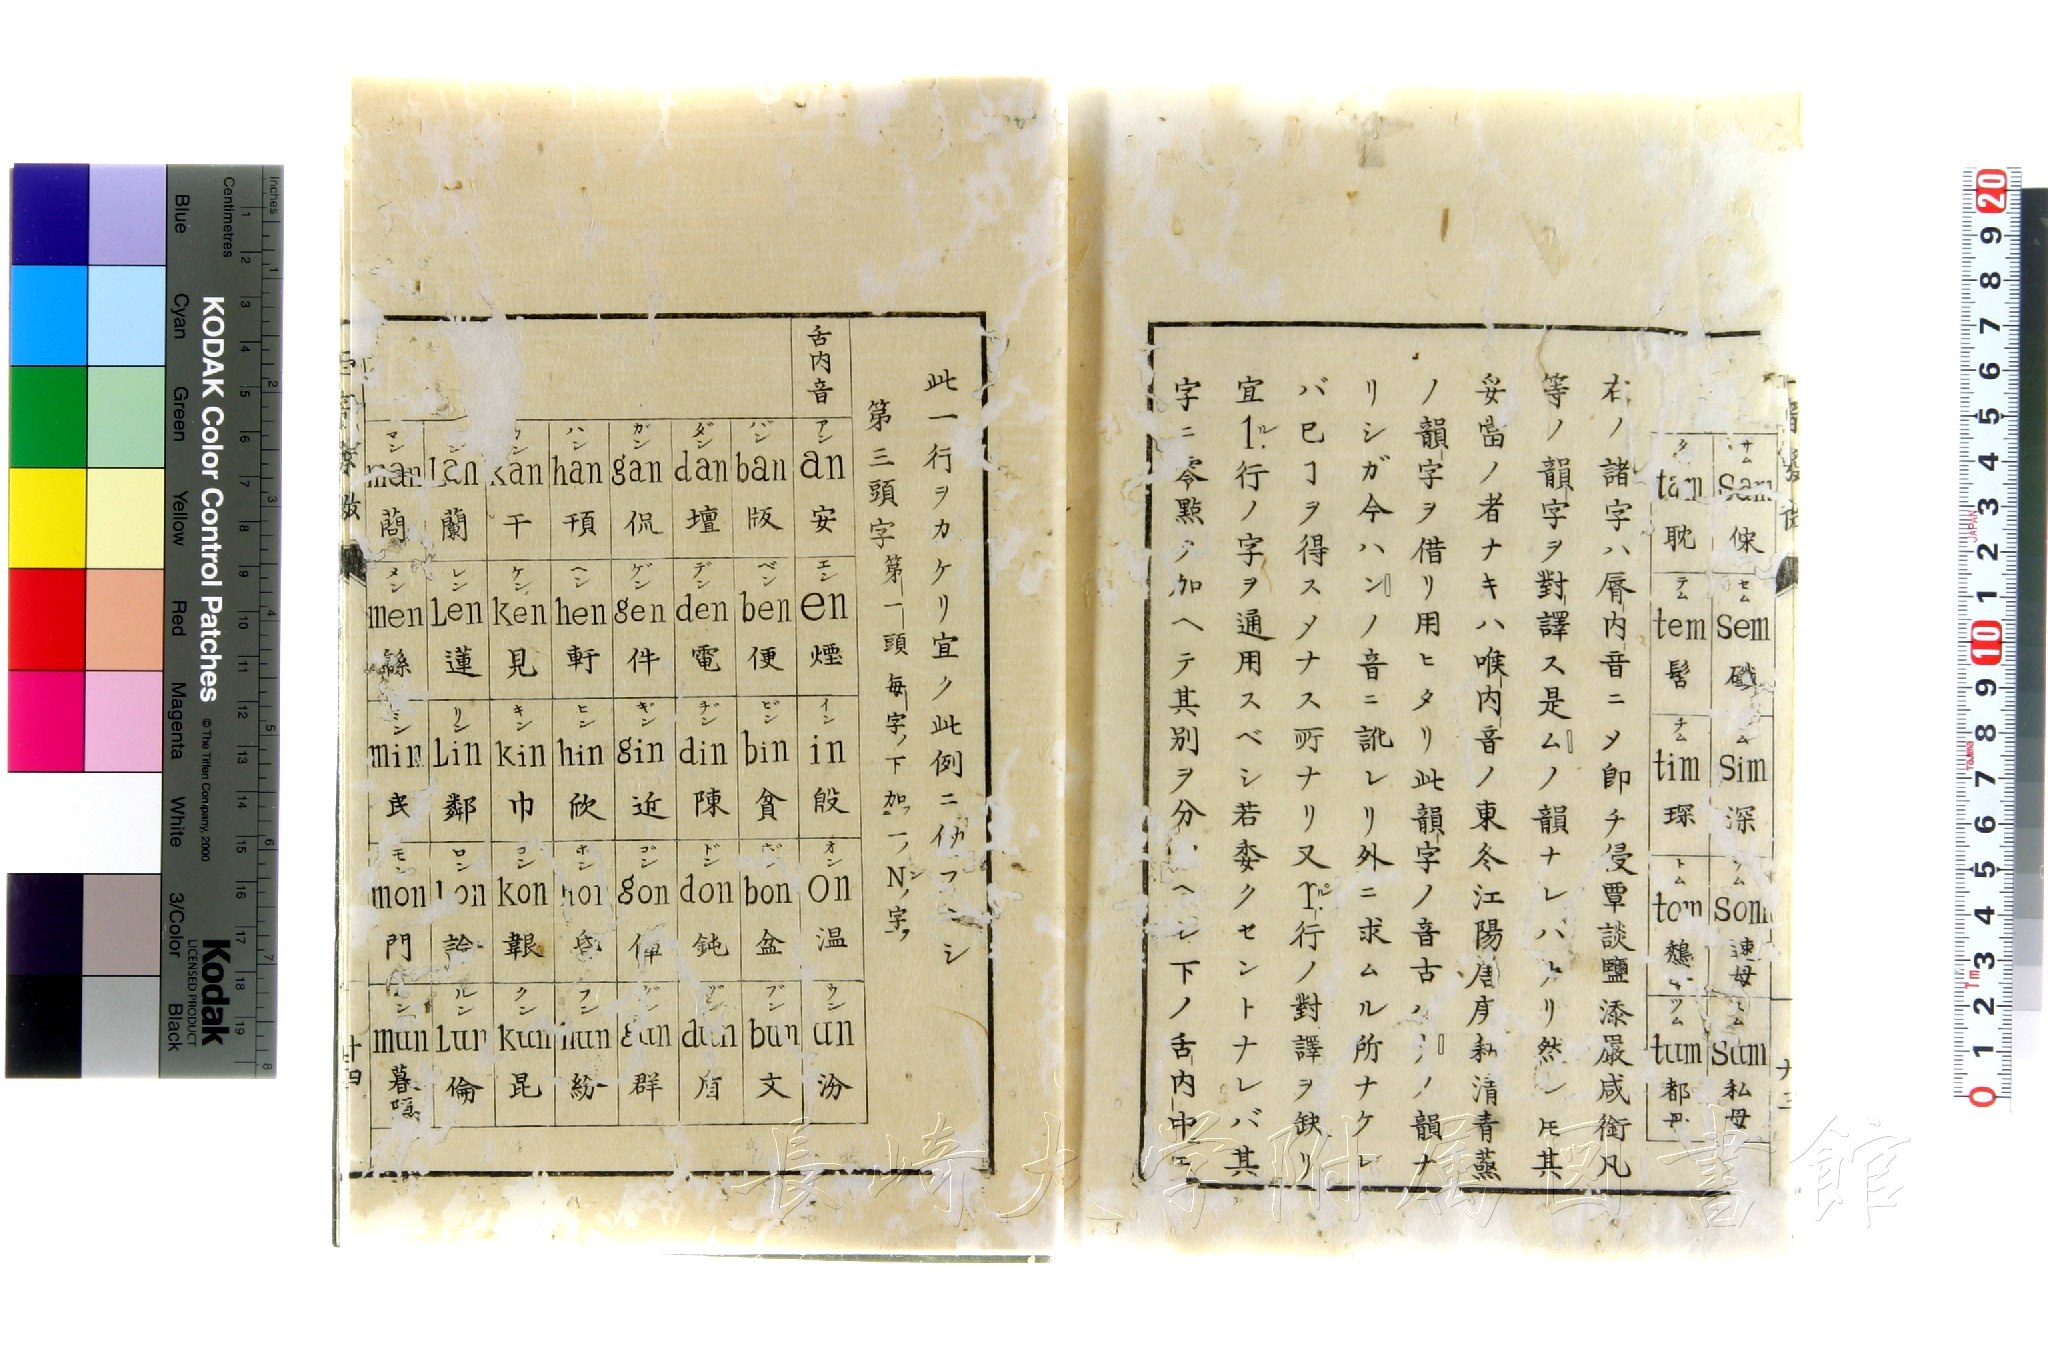 サム sam 傪
セム sem 殱
sim 深
som 速母
sum 私母
tam 耽
テム tem 髻
チム tim 琛
トム tom
ツム tum 都母
右ノ諸字ハ脣内音ニメ卽チ侵覃談鹽添嚴咸銜凡
等ノ韻字ヲ對譯ス是ムノ韻ナレバナリ然レㇳモ其
妥當ノ者ナキハ喉内音ノ東冬江陽唐庚耕清青蒸
ノ韻字ヲ借リ用ヒタリ此韻字ノ音古ハノ韻ナ
リシガ今ハンノ音ニ訛レリ外ニ求ムル所ナケレ
バ已ヿヲ得スメナス所ナリ又r行ノ對譯ヲ缺リ
宜l行ノ字ヲ通用スベシ若委クセントナレバ其
字ニ零點ヲ加ヘテ其別ヲ分ツヘシ下ノ舌内中ニ
十三
此一行ヲカケリ宜ク此例ニ倣フヘシ
第三頭字 第一頭毎字ノ下加フ一ノNノ字ヲ
舌内音
アン an 安
エン en 煙
イン in 殷
オン on 温
ウン un 汾
バン ban 版
ベン ben 便
ビン bin 貧
ボン bon 盆
ブン bun 文
ダン dan 壇
デン den 電
ヂン din 陳
ドン don 鈍
dun 盾
ガン gan 侃
ゲン gen 件
ギン gin 近
ゴン gon
グン gun 群
ハン han 頇
ヘン hen 軒
ヒン hin 欣
ホン hon 昏
フン hun 紛
カン kan 干
ケン ken 見
キン kin 巾
コン kon 報
クン kun 昆
Lan 蘭
レン Len 蓮
リン Lin 鄰
ロン Lon 論
ルン Lun 倫
マン man
メン men 緜
ミン min 民
モン mon 門
mun 暮
十四
Inches
Centimetres
KODAK Color Control Patches
© The Tiffen Company, 2000
Kodak
LICENSED PRODUCT
Blue
Cyan
Green
Yellow
Red
Magenta
White
3/Color
Black
長崎大学附属図書館
JAPAN
Tajima